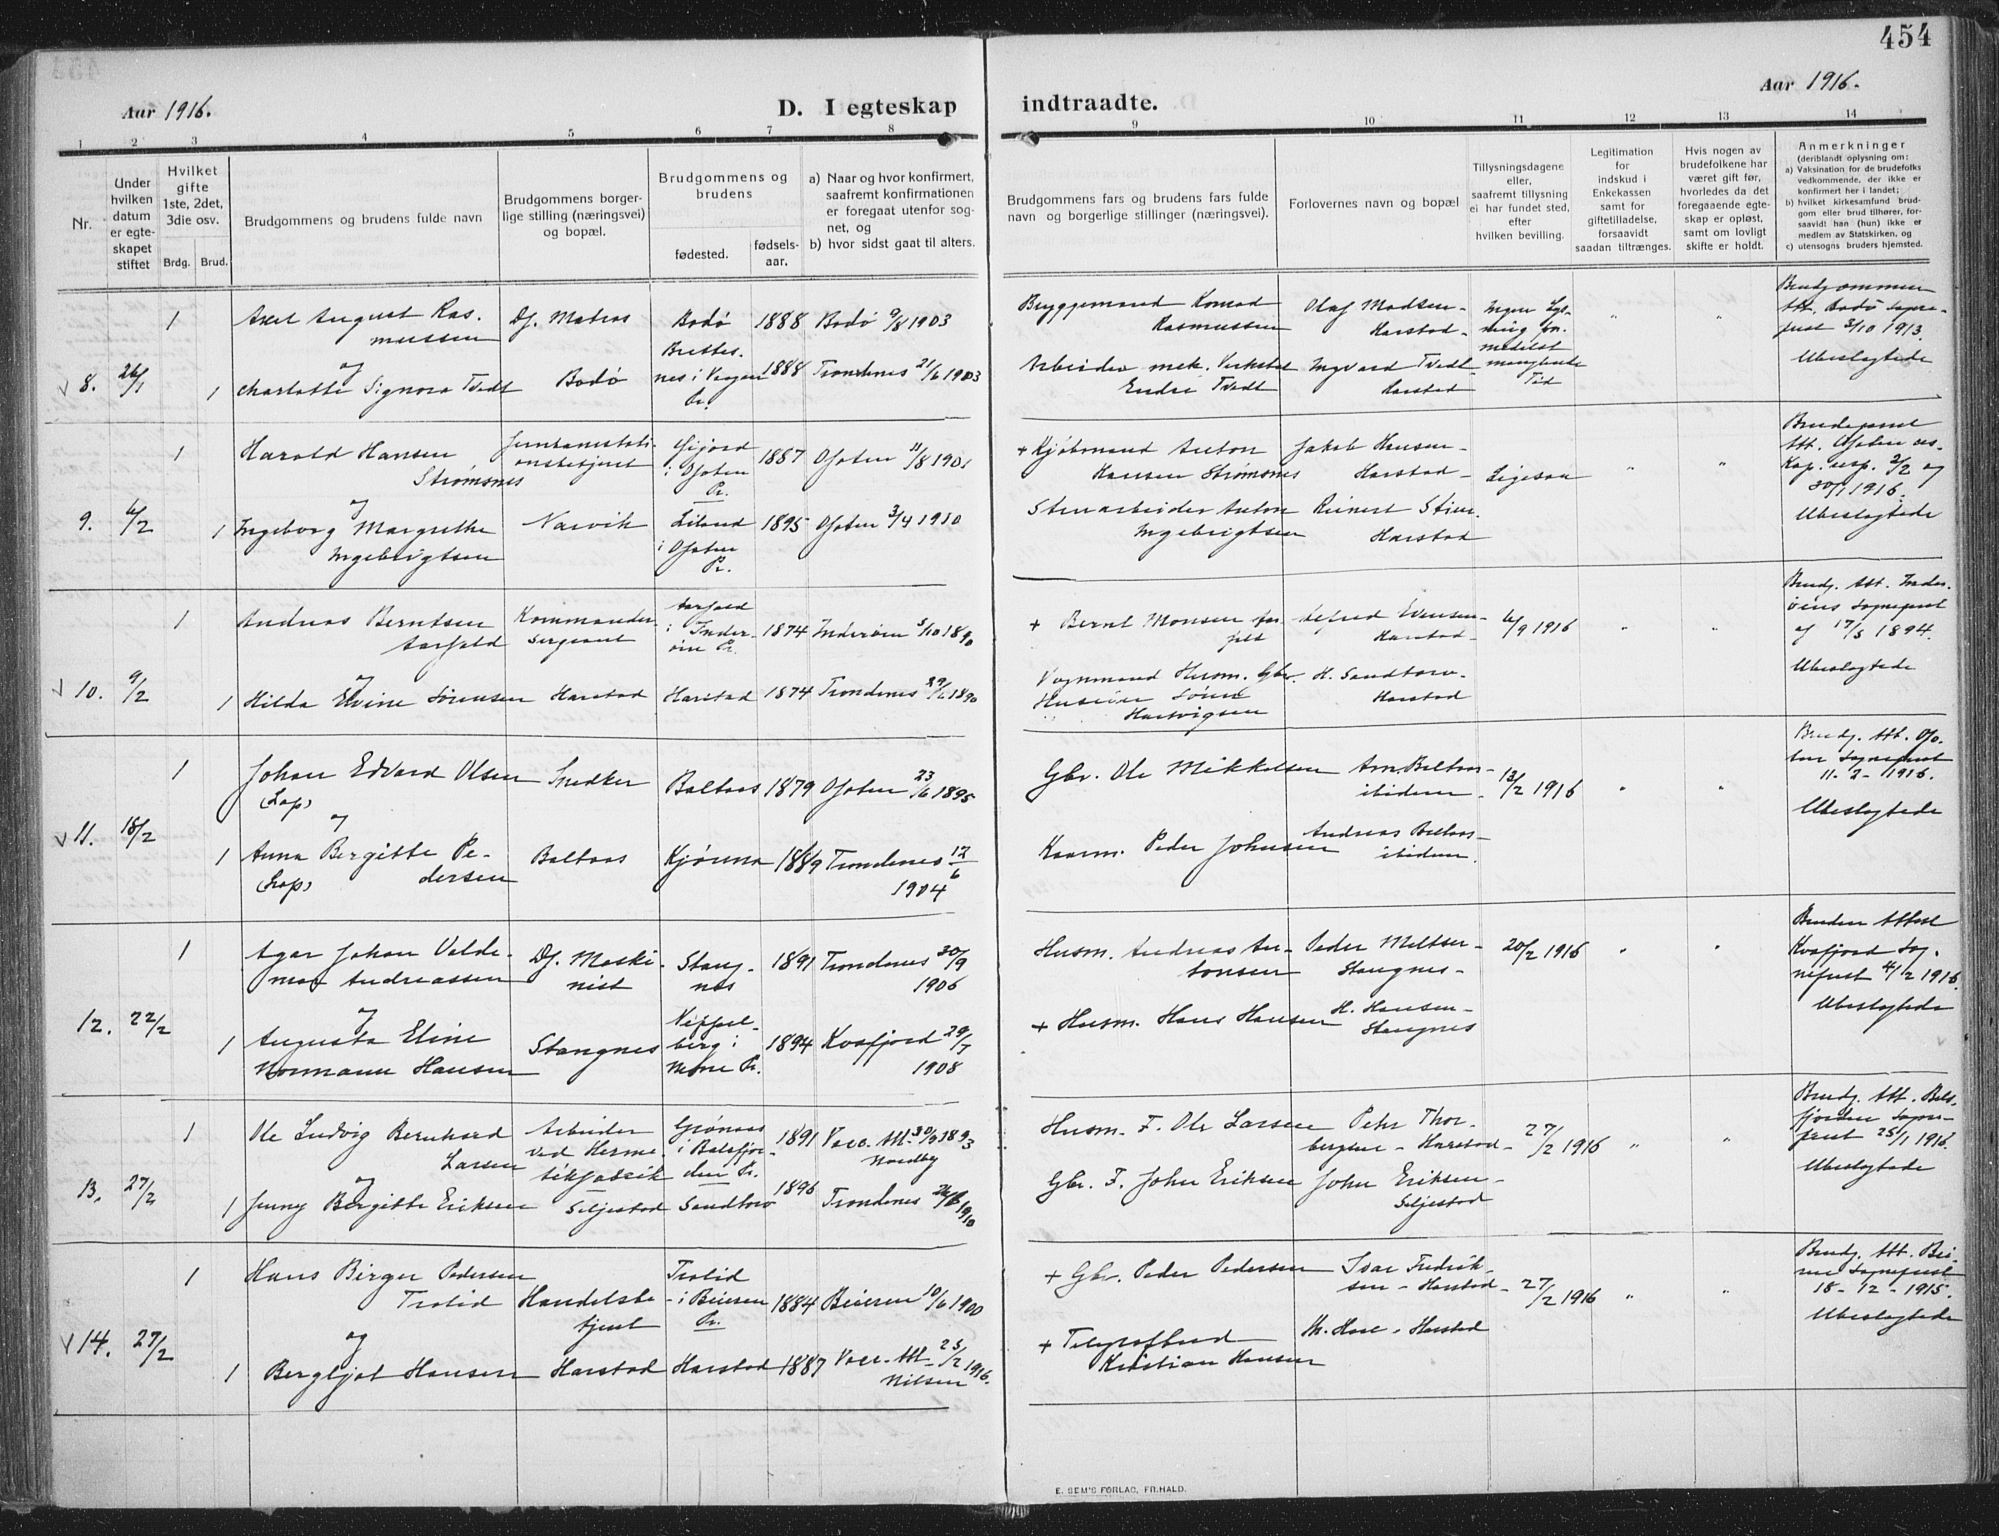 454
Aar 1916.
D. I egteskap indtraadte.
Aar 1916.
1 2 3 4 5 6 7 8 9 10 11 12 13 14
Nr.
Under hvilken datum er egteskapet stiftet
Hvilket gifte 1ste, 2det, 3die osv.
Brdg. Brud.
Brudgommens og brudens fulde navn
Brudgommens borgerlige stilling (næringsvei) og bopæl.
Brudgommens og brudens
fødested.
fødselsaar.
a) Naar og hvor konfirmert, saafremt konfirmationen er foregaat utenfor sognet, og
b) hvor sidst gaat til alters.
Brudgommens fars og brudens fars fulde navn og borgerlige stillinger (næringsvei).
Forlovernes navn og bopæl
Tillysningsdagene eller, saafremt tillysning ei har fundet sted, efter hvilken bevilling.
Legitimation for indskud i Enkekassen samt for giftetilladelse, forsaavidt saadan tiltrænges.
Hvis nogen av brudefolkene har været gift før, hvorledes da det foregaaende egteskap er opløst, samt om lovligt skifte er holdt.
Anmerkninger
(deriblandt oplysning om:
a) Vaksination for de brudefolks vedkommende, der ikke er konfirmert her i landet;
b) hvilket kirkesamfund brudgom eller brud tilhører, forsaavidt han (hun) ikke er medlem av Statskirken, og
c) utensogns bruders hjemsted.
8. 26/1
1 Axel August Rasmussen Df. Matros Bodø 1888 Bodø 9/8 1903 Bryggemand Konrad Rasmussen Olaf Madsen - Harstad - Ingen Lysning formedelst manglende Tid " " Brudgommens Att. Bodø Sogneprest 3/10 1913. Ubeslægtede
og
1 Charlotte Signora Tvedt Bodø Brettesnes i Vaagan Pr. 1888 Trondenes 21/6 1903 Arbeider mek. Verksted Endre Tvedt Ingvard Tvedt Harstad
9. 6/2
1 Harald Hansen Strømsnes Jernbanestationsbetjent i Ofoten Pr. 1887 Ofoten 11/8 190 + Kjøbmand Anton Hansen Strømsnes Jakob Hansen - Harstad - Ligesaa " " Att. Ofoten Kap. 2/2 og 30/1 1916. Ubeslægtede
og
1 Ingeborg Margrethe Ingebrigtsen Narvik Liland i Ofoten Pr. 1895 Ofoten 3/4 1910 Anton Ingebrigtsen Reinert Harstad
10. 9/2
1 Andreas Berntsen Aarfald Kommandersergeant Aarfald i Inderøen Pr. 1874 Inderøen 5/10 1890 + Bernt Monsen Alfred Evensen - Harstad - 6/9 1916 " " Brudg. Att. Inderøens Sogneprest af 17/5 1894. Ubeslægtede
og
1 Hilda Elvine Sørensen Harstad Harstad 1874 Trondenes 29/6 1890 Vognmand Husm. Gbr. Søren Hartvigsen H. Sandtorv - Harstad
11. 18/2
1 Johan Edvard Olsen (Lap) Snedker Boltaas 1879 Ofoten 23/6 1895 Gbr. Ole Mikkelsen Arn. Boltaas - ibidem - 13/2 1916 " " Brudg. Att. Ofoten Sogneprest 11-2-1916. Ubeslægtede
og
1 Anna Bergitte Pedersen (Lap) Boltaas Kjønna 1889 Trondenes 12/6 1904 Peder Johnsen Andreas Boltaas - ibidem.
12. 22/2
1 Agar Johan Valdemar Andreassen Df. Maskinist Stangnes 1891 Trondenes 30/9 1906 Husm. Andreas Antonsen Peder Meltser - Stangnes - 20/2 1916 " " Bruden Attest Kvæfjord Sogneprest 4/2 1916. Ubeslægtede
og
1 Augusta Eline Normann Hansen Stangnes 1894 Kvæfjord 29/7 1908 + Husm. Hans Hansen H. Hansen - Stangnes
13. 27/2
1 Ole Ludvig Bernhard Larsen Arbeider ved Hermetikfabrik Grønaas i Balsfjorden Pr. 1891 Vacc. Att. 30/9 1893 Nordby Husm. F. Ole Larsen Petr Thorbergsen - Harstad - 27/2 1916 " " Brudg. Att. Balsfjorden Sogneprest 25/1 1916. Ubeslægtede
og
1 Jenny Bergitte Eriksen Seljestad Sandtorv 1896 Trondenes 1910 Gbr. F. John Eriksen John Eriksen - Seljestad
14. 27/2
1 Hans Birger Pedersen Trolid Handelsbetjent Trolid i Beieren Pr. 1884 Beieren 10/6 1900 + Gbr. Peder Pedersen Ivar Fredriksen - Harstad - 27/2 1916 " " Brudg. Att. Beieren Sogneprest 18-12-1915. Ubeslægtede
og
1 Bergljot Hansen Harstad Harstad 1887 Vacc. Att. 25/2 1916. Nilsen + Telegrafbud Kristian Hansen - Harstad
E. SEM'S FORLAG, FR.HALD.